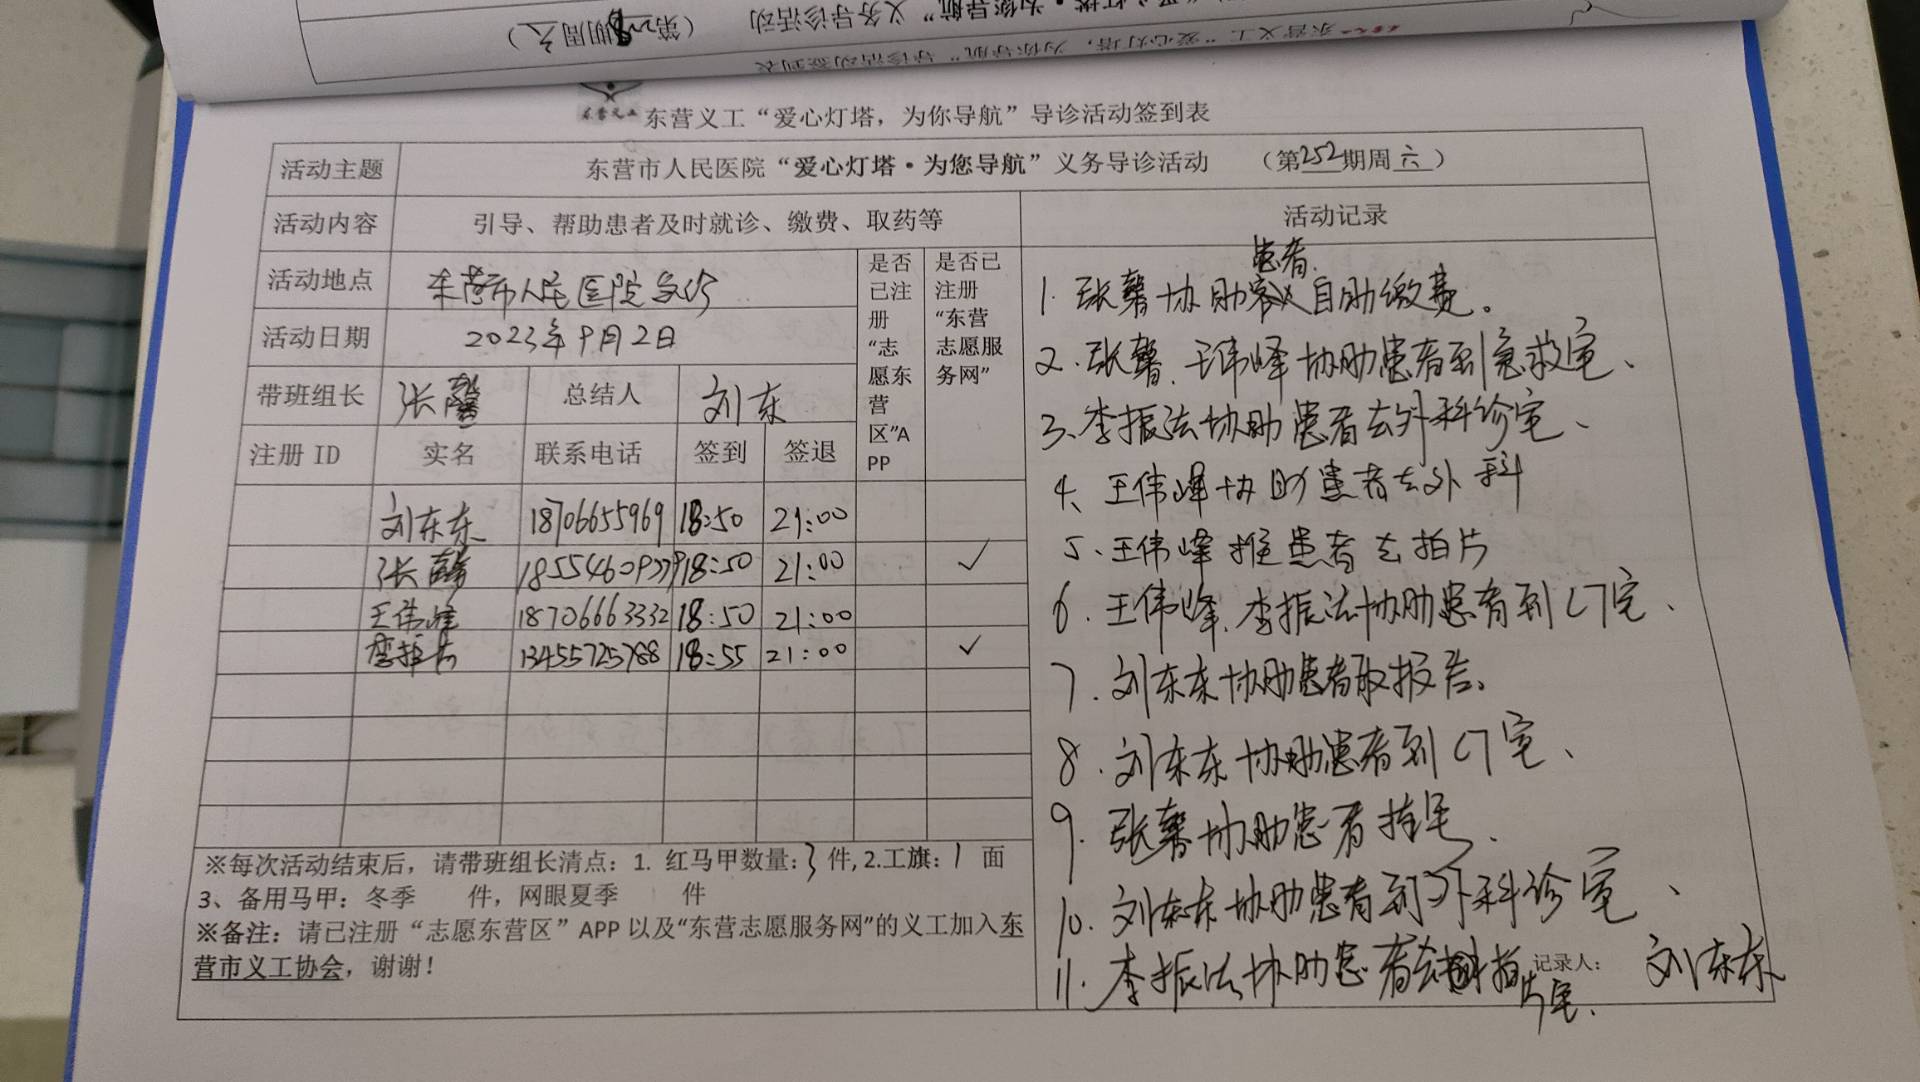 东营义工“爱心灯塔，为你导航”导诊活动签到表
东营义工“爱心灯塔，为你导航”导诊活动签到表
活动主题 东营市人民医院“爱心灯塔·为您导航”义务导诊活动 （第252期周六）
活动内容 引导、帮助患者及时就诊、缴费、取药等 活动记录
活动地点 东营市人民医院急诊
活动日期 2023年9月2日
带班组长 张馨 总结人 刘东
是否已注册“志愿东营区”APP
是否已注册“东营志愿服务网”
注册 ID 实名 联系电话 签到 签退
刘东东 18706655969 18:50 21:00
张馨 18:50 21:00 ✓
王伟峰 18706663332 18:50 21:00
李振法 13455725788 18:55 21:00 ✓
※每次活动结束后，请带班组长清点：1. 红马甲数量：3 件, 2.工旗：1 面
3、备用马甲：冬季 件，网眼夏季 件
※备注：请已注册“志愿东营区”APP 以及“东营志愿服务网”的义工加入东
营市义工协会，谢谢！
患者
1. 张馨协助自助缴费。
2、张馨、王伟峰协助患者到急救室、
3、李振法协助患者去外科诊室、
4、王伟峰协助患者去外科
5、王伟峰推患者去拍片
6、王伟峰、李振法协助患者到CT室、
7、刘东东协助患者取报告。
8、刘东东协助患者到CT室、
9、张馨协助患者挂号、
10、刘东东协助患者到外科诊室、
11、李振法协助患者去拍
片室、
记录人： 刘东东